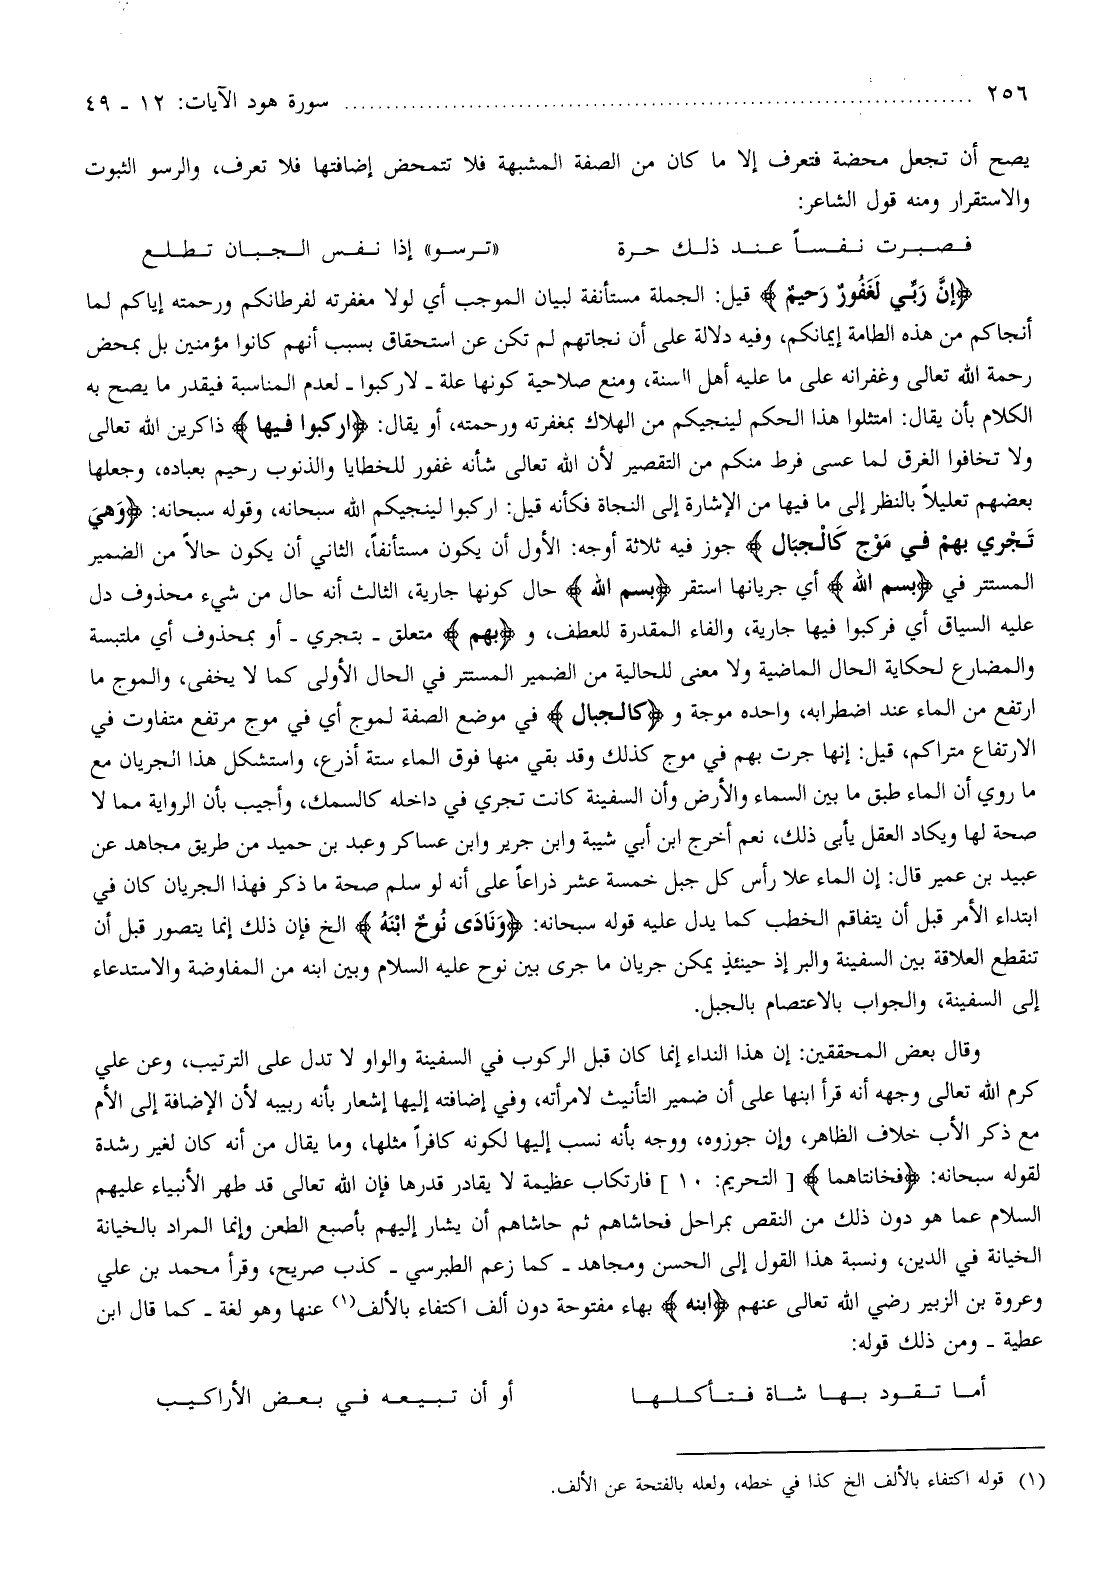 ٢٥٦ ........................................ سورة هود الآيات: ١٢ - ٤٩
يصح أن تجعل محضة فتعرف إلا ما كان من الصفة المشبهة فلا تتمحض إضافتها فلا تعرف، والرسو الثبوت
والاستقرار ومنه قول الشاعر:
فـصـبرت نـفـسـاً عـنـد ذلـك حـرة «تـرسـو» إذا نـفـس الـجـبـان تـطـلـع
﴿إنَّ رَبِّي لَغَفُورٌ رَحِيمٌ﴾ قيل: الجملة مستأنفة لبيان الموجب أي لولا مغفرته لفرطانكم ورحمته إياكم لما
أنجاكم من هذه الطامة إيمانكم، وفيه دلالة على أن نجاتهم لم تكن عن استحقاق بسبب أنهم كانوا مؤمنين بل بمحض
رحمة الله تعالى وغفرانه على ما عليه أهل السنة، ومنع صلاحية كونها علة ـ لاركبوا ـ لعدم المناسبة فيقدر ما يصح به
الكلام بأن يقال: امتثلوا هذا الحكم لينجيكم من الهلاك بمغفرته ورحمته، أو يقال: ﴿اركبوا فيها﴾ ذاكرين الله تعالى
ولا تخافوا الغرق لما عسى فرط منكم من التقصير لأن الله تعالى شأنه غفور للخطايا والذنوب رحيم بعباده، وجعلها
بعضهم تعليلاً بالنظر إلى ما فيها من الإشارة إلى النجاة فكأنه قيل: اركبوا لينجيكم الله سبحانه، وقوله سبحانه: ﴿وَهيَ
تَجْري بهمْ في مَوْج كَالْجبَال﴾ جوز فيه ثلاثة أوجه: الأول أن يكون مستأنفاً، الثاني أن يكون حالاً من الضمير
المستتر في ﴿بسم الله﴾ أي جريانها استقر ﴿بسم الله﴾ حال كونها جارية، الثالث أنه حال من شيء محذوف دل
عليه السياق أي فركبوا فيها جارية، والفاء المقدرة للعطف، و ﴿بهم﴾ متعلق ـ بتجري ـ أو بمحذوف أي ملتبسة
والمضارع لحكاية الحال الماضية ولا معنى للحالية من الضمير المستتر في الحال الأولى كما لا يخفى، والموج ما
ارتفع من الماء عند اضطرابه، واحده موجة و ﴿كالجبال﴾ في موضع الصفة لموج أي في موج مرتفع متفاوت في
الارتفاع متراكم، قيل: إنها جرت بهم في موج كذلك وقد بقي منها فوق الماء ستة أذرع، واستشكل هذا الجريان مع
ما روي أن الماء طبق ما بين السماء والأرض وأن السفينة كانت تجري في داخله كالسمك، وأجيب بأن الرواية مما لا
صحة لها ويكاد العقل يأبى ذلك، نعم أخرج ابن أبي شيبة وابن جرير وابن عساكر وعبد بن حميد من طريق مجاهد عن
عبيد بن عمير قال: إن الماء علا رأس كل جبل خمسة عشر ذراعاً على أنه لو سلم صحة ما ذكر فهذا الجريان كان في
ابتداء الأمر قبل أن يتفاقم الخطب كما يدل عليه قوله سبحانه: ﴿وَنَادَى نُوحٌ ابْنَهُ﴾ الخ فإن ذلك إنما يتصور قبل أن
تنقطع العلاقة بين السفينة والبر إذ حينئذٍ يمكن جريان ما جرى بين نوح عليه السلام وبين ابنه من المفاوضة والاستدعاء
إلى السفينة، والجواب بالاعتصام بالجبل.
وقال بعض المحققين: إن هذا النداء إنما كان قبل الركوب في السفينة والواو لا تدل على الترتيب، وعن علي
كرم الله تعالى وجهه أنه قرأ ابنها على أن ضمير التأنيث لامرأته، وفي إضافته إليها إشعار بأنه ربيبه لأن الإضافة إلى الأم
مع ذكر الأب خلاف الظاهر، وإن جوزوه، ووجه بأنه نسب إليها لكونه كافراً مثلها، وما يقال من أنه كان لغير رشدة
لقوله سبحانه: ﴿فخانتاهما﴾ [ التحريم: ١٠ ] فارتكاب عظيمة لا يقادر قدرها فإن الله تعالى قد طهر الأنبياء عليهم
السلام عما هو دون ذلك من النقص بمراحل فحاشاهم ثم حاشاهم أن يشار إليهم بأصبع الطعن وإنما المراد بالخيانة
الخيانة في الدين، ونسبة هذا القول إلى الحسن ومجاهد ـ كما زعم الطبرسي ـ كذب صريح، وقرأ محمد بن علي
وعروة بن الزبير رضي الله تعالى عنهم ﴿ابنه﴾ بهاء مفتوحة دون ألف اكتفاء بالألف(١) عنها وهو لغة ـ كما قال ابن
عطية ـ ومن ذلك قوله:
أمـا تـقـود بـهـا شاة فـتـأكـلـهـا أو أن تـبـيـعـه فـي بـعـض الأراكـيـب
(١) قوله اكتفاء بالألف الخ كذا في خطه، ولعله بالفتحة عن الألف.